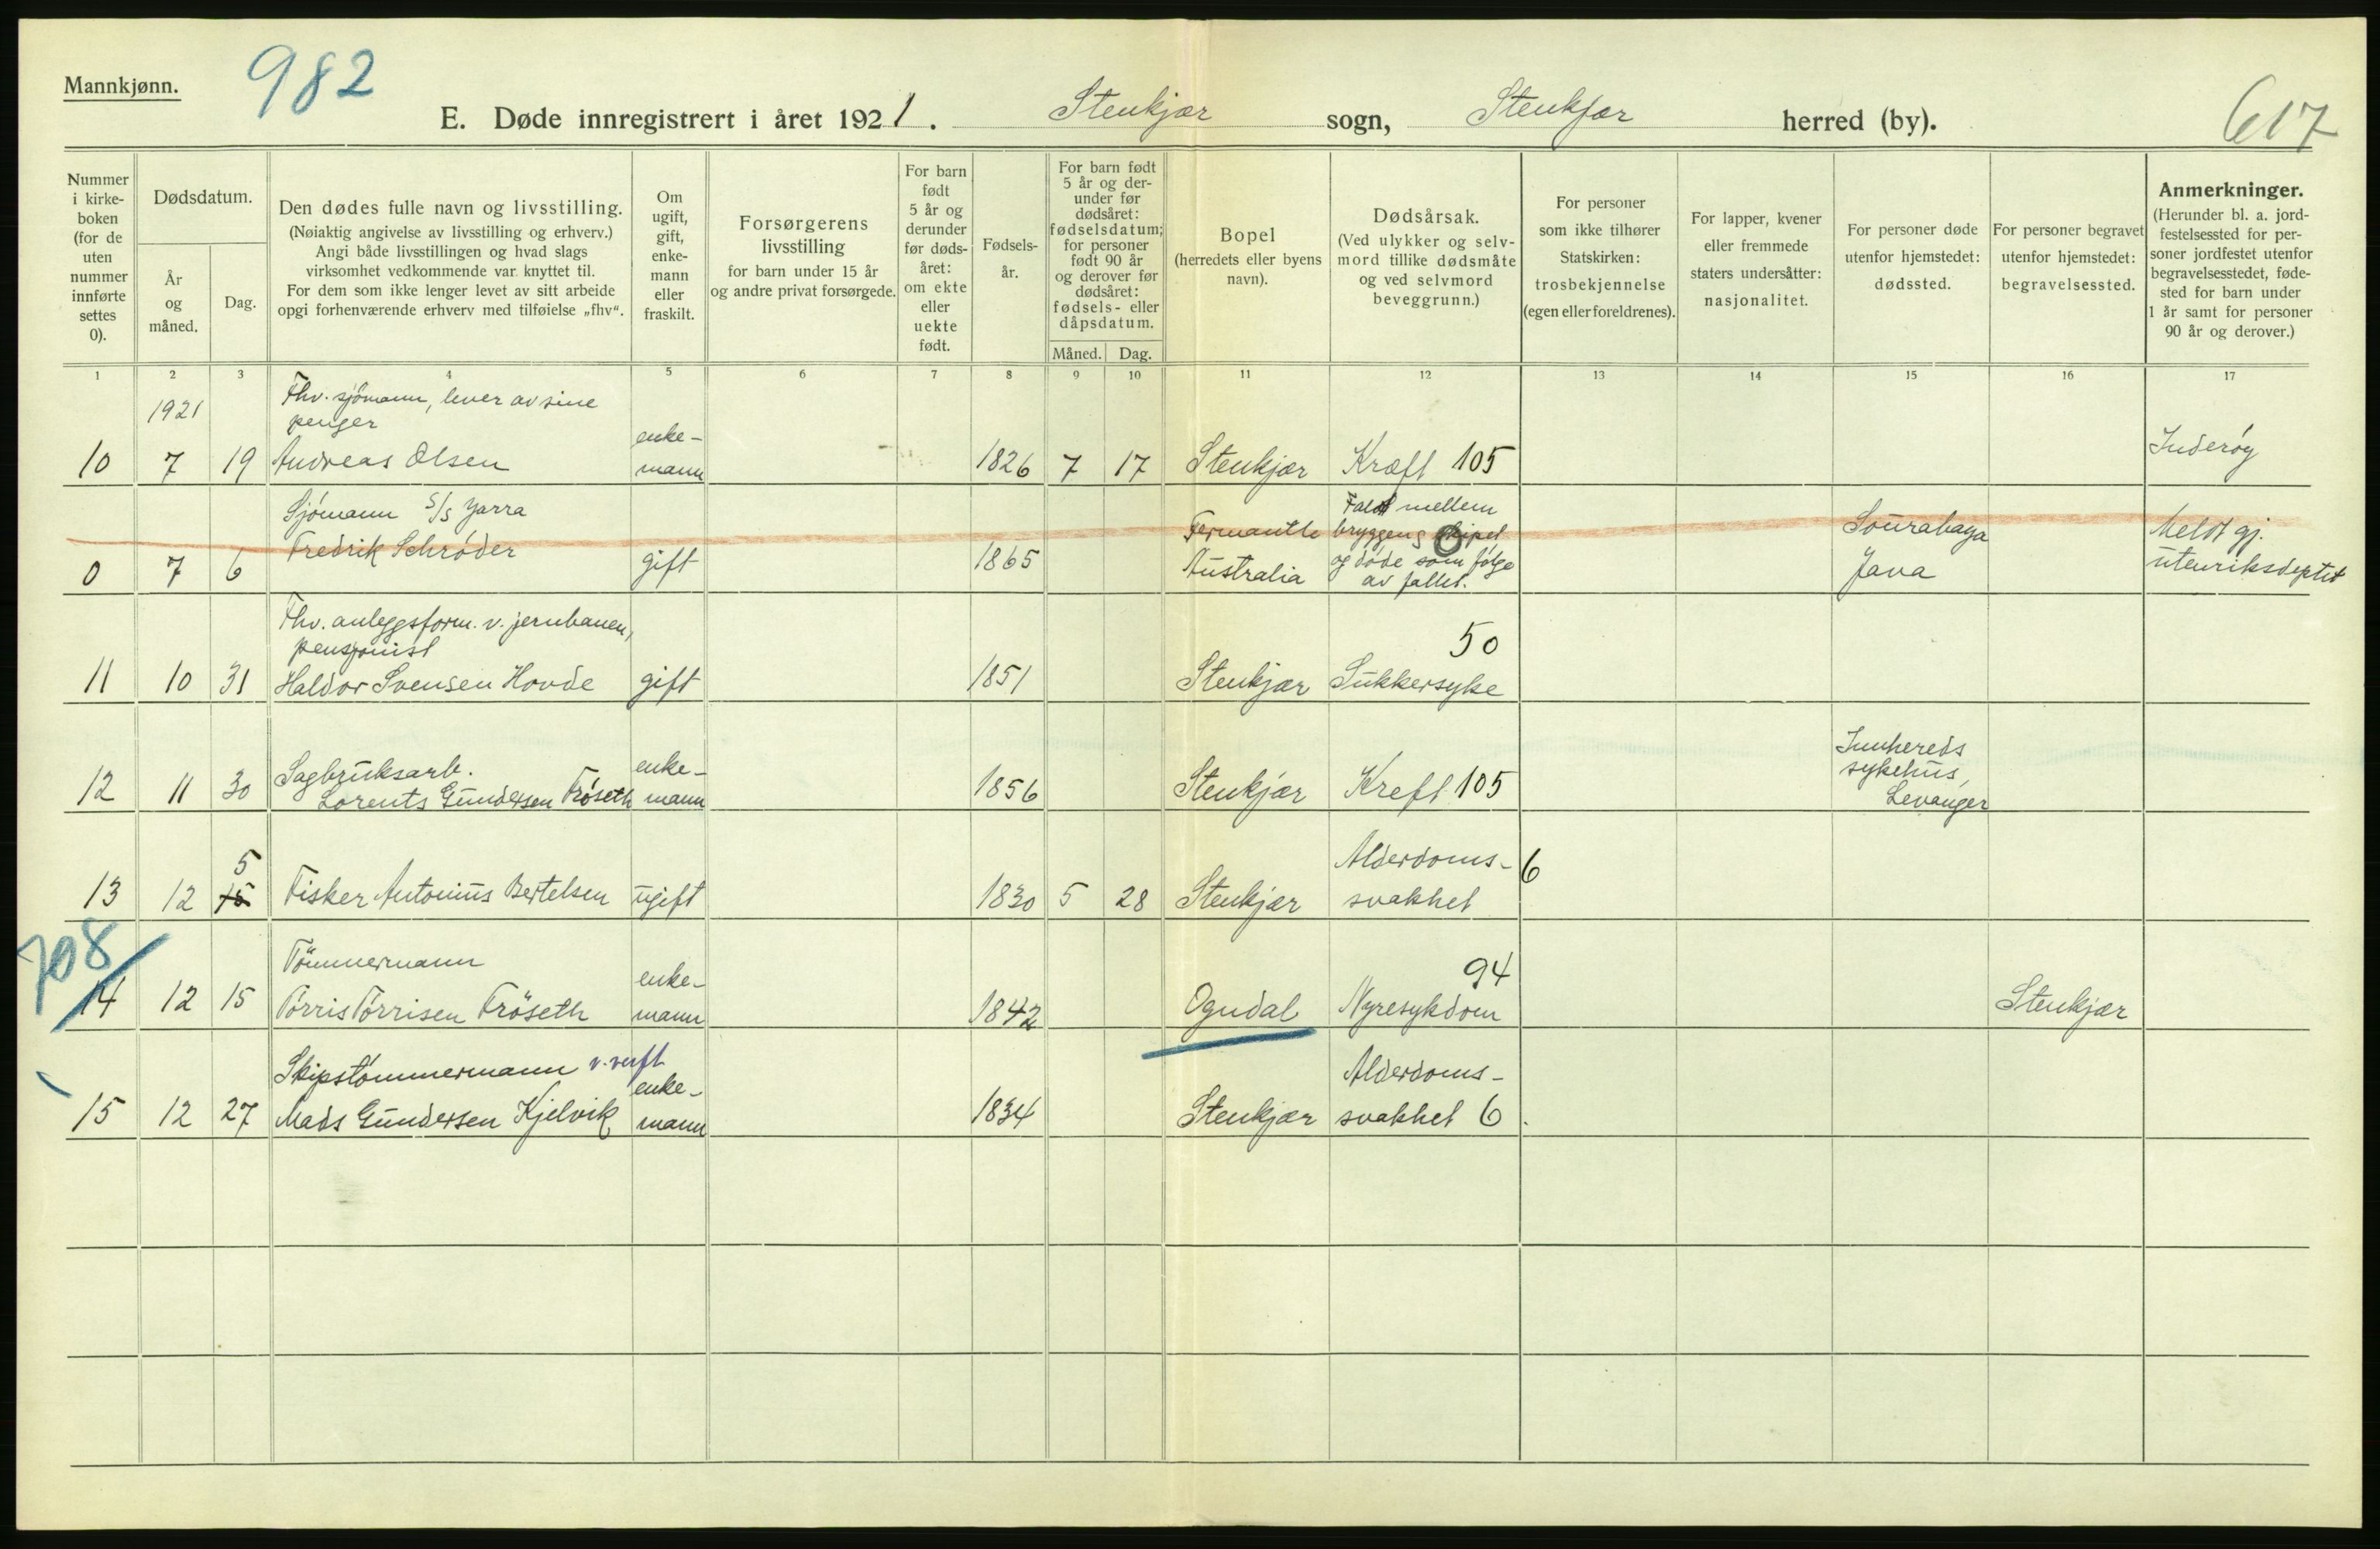 Mannkjønn.
982
E. Døde innregistrert i året 1921. Stenkjær sogn, Stenkjær herred (by).
617
Nummer i kirke- boken (for de uten nummer innførte settes 0).
Dødsdatum.
År og måned.
Dag.
Den dødes fulle navn og livsstilling.
(Nøiaktig angivelse av livsstilling og erhverv.)
Angi både livsstillingen og hvad slags
virksomhet vedkommende var knyttet til.
For dem som ikke lenger levet av sitt arbeide
opgi forhenværende erhverv med tilføielse „fhv“.
Om ugift, gift, enke- mann eller fraskilt.
Forsørgerens
livsstilling
for barn under 15 år
og andre privat forsørgede.
For barn født 5 år og derunder før døds- året: om ekte eller uekte født.
Fødsels- år.
For barn født 5 år og der- under før dødsåret: fødselsdatum; for personer født 90 år og derover før dødsåret: fødsels- eller dåpsdatum.
Måned. Dag.
Bopel
(herredets eller byens
navn).
Dødsårsak.
(Ved ulykker og selv-
mord tillike dødsmåte
og ved selvmord
beveggrunn.)
For personer
som ikke tilhører
Statskirken:
trosbekjennelse
(egen eller foreldrenes).
For lapper, kvener
eller fremmede
staters undersåtter:
nasjonalitet.
For personer døde
utenfor hjemstedet:
dødssted.
For personer begravet
utenfor hjemstedet:
begravelsessted.
Anmerkninger.
(Herunder bl. a. jord-
festelsessted for per-
soner jordfestet utenfor
begravelsesstedet, føde-
sted for barn under
1 år samt for personer
90 år og derover.)
1 2 3 4 5 6 7 8 9 10 11 12 13 14 15 16 17
1921 Fhv. sjömann, lever av sine
penger
10 7 19 Andreas Olsen enke- mann 1826 7 17 Stenkjær Kræft 105 Inderöy
Sjömann S/S Yarra
0 7 6 Fredrik Schröder gift 1865 Fermantle Australia
Faldt mellem
bryggen & skipet
og döde som fölge
av fallet.
0
Sourabaya
Java
Meldt gj.
utenriksdeptet
Fhv. anleggsform. v. jernbanen,
pensjonist
11 10 31 Haldor Svensen Hovde gift 1851 Stenkjær Sukkersyke 50
Sagbruksarb.
12 11 30 Lorents Gundersen Fröseth enke- mann 1856 Stenkjær Kreft 105
Innhereds
sykehus,
Levanger
13 12 15 5 Fisker Antonius Bertelsen ugift 1830 5 28 Stenkjær Alderdoms- svakhet 6
708
Tömmermann
14 12 15 Torris Torrisen Fröseth enke- mann 1842 Ogndal Nyresykdom 94 Stenkjær
Skipstömmermann v. verft
15 12 27 Mads Gundersen Kjelvik enke- mann 1834 Stenkjær Alderdoms- svakhet 6